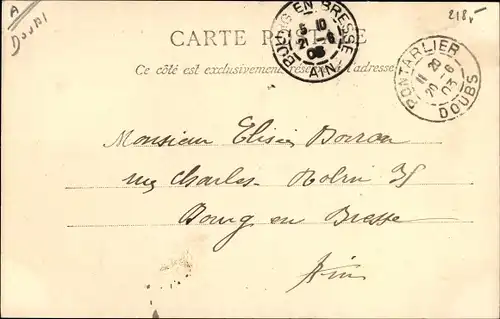 A
Doubs
218v
CARTE POSTALE
Ce côté est exclusivement réservé à l'adresse
BOURG EN BRESSE
5 10
21 -6
03
AIN
PONTARLIER
11 20
20 -6
03
DOUBS
Monsieur Elisée Borron
rue Charles-Robin 35
Bourg en Bresse
Ain